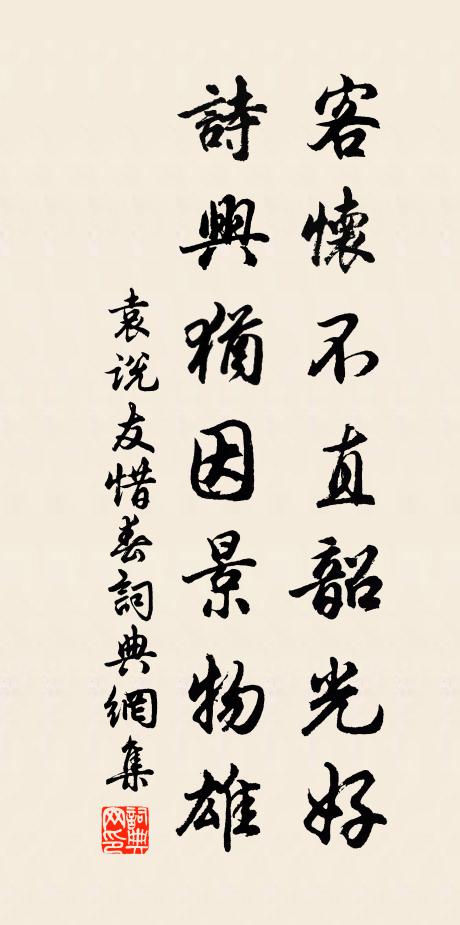 客懷不直韶光好
詩興猶因景物雄
袁说友惜春詞典網集
詞典网印